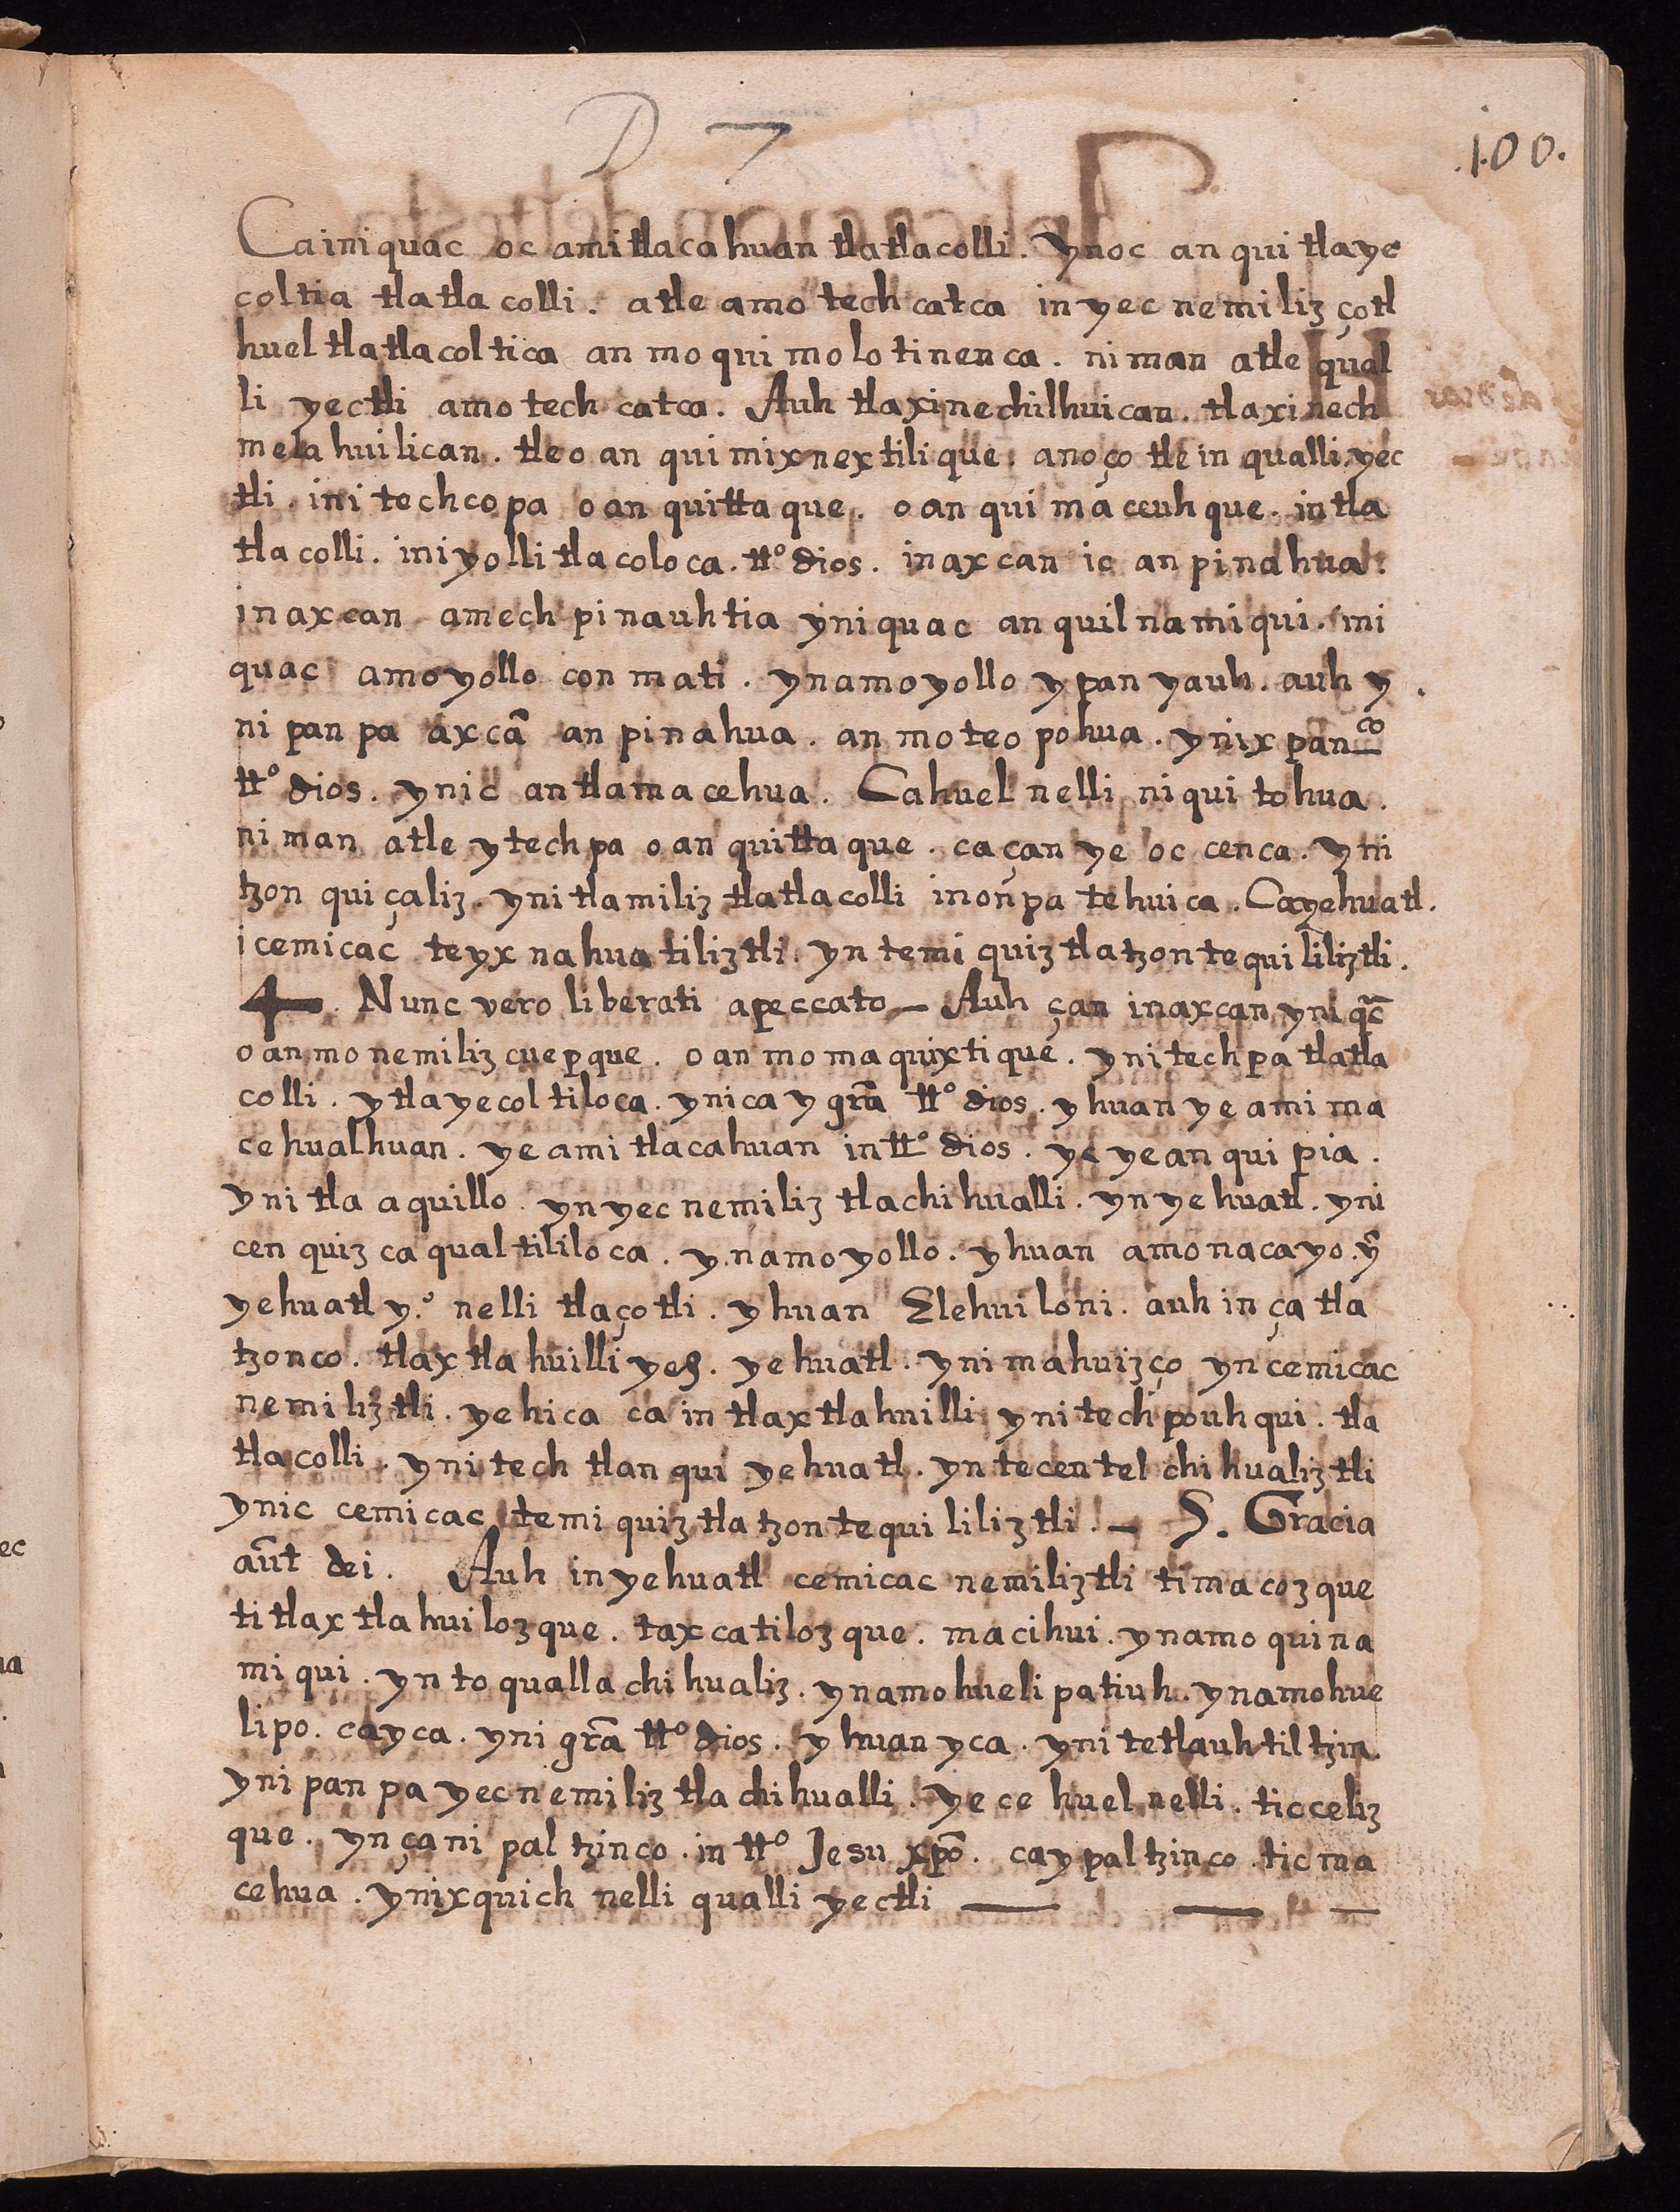 D 7
.100.
Cainiquac oc amitlacahuan tlatlacolli. ynoc an quitlaye
coltia tlatlacolli. atle amotech catca in yec nemiliz çotl
huel tlatlacoltica an moquimolotinenca. niman atle qual
li yectli amotech catca. Auh tlaxinechilhuican. tlaxinech
melahuilican. tle o an quimixnextilique. anoço tle in qualli yec
tli. initechcopa o an quittaque. o an quimaceuhque. in tla
tlacolli. iniyollitlacoloca. tt.º dios. inaxcan ic anpinahua.
inaxcan amechpinauhtia yniquac anquilnamiqui. ini
quac amoyollo conmati. ynamoyollo ypan yauh. auh y
nipanpa axcã anpinahua. anmoteopohua. ynixpan co
tt.º dios. ynic antlamacehua. Cahuel nelli niquitohua.
niman atle ytechpa o an quittaque. caçan ye oc cenca. yni
tzonquiçaliz. ynitlamiliz tlatlacolli inonpa tehuica. Cayehuatl.
icemicac teyxnahuatiliztli. yn temiquiztlatzontequililiztli.
Nunc vero liberati apeccato — Auh çan inaxcan yniq̃c
o anmonemilizcuepque. o anmomaquixtique. ynitechpa tlatla
colli. ytlayecoltiloca. ynica y grã tt.º dios. yhuan ye amima
cehualhuan. ye amitlacahuan in tt.º dios. ye yeanquipia.
ynitlaaquillo. ynyecnemiliz tlachihualli. yn yehuatl. yni
cenquizcaqualtililoca. ynamoyollo. yhuan amonacayo. ỹ
yehuatl y.º nelli tlaçotli. yhuan Elehuiloni. auh in ça tla
tzonco. tlaxtlahuilli yez. yehuatl. ynimahuizço yn cemicac
nemiliztli. yehica ca in tlaxtlahuilli ynitechpouhqui. tla
tlacolli. ynitech tlanqui yehuatl. yn tecentelchihualiztli
ynic cemicac temiquiztlatzontequililiztli. — S. Gracia
aũt dei. Auh inyehuatl cemicac nemiliztli timacozque
titlaxtlahuilozque. taxcatilozque. macihui. ynamo quina
miqui. yn toquallachihualiz. ynamohueli patiuh. ynamohue
lipo. cayca. yni grã tt.º dios. yhuan yca. ynitetlauhtiltzin.
ynipanpa yecnemiliz tlachihualli. yece huel nelli. ticceliz
que. ynçanipaltzinco. in tt.º Jesu xpõ. caypaltzinco. ticma
cehua. ynixquich nelli qualli yectli